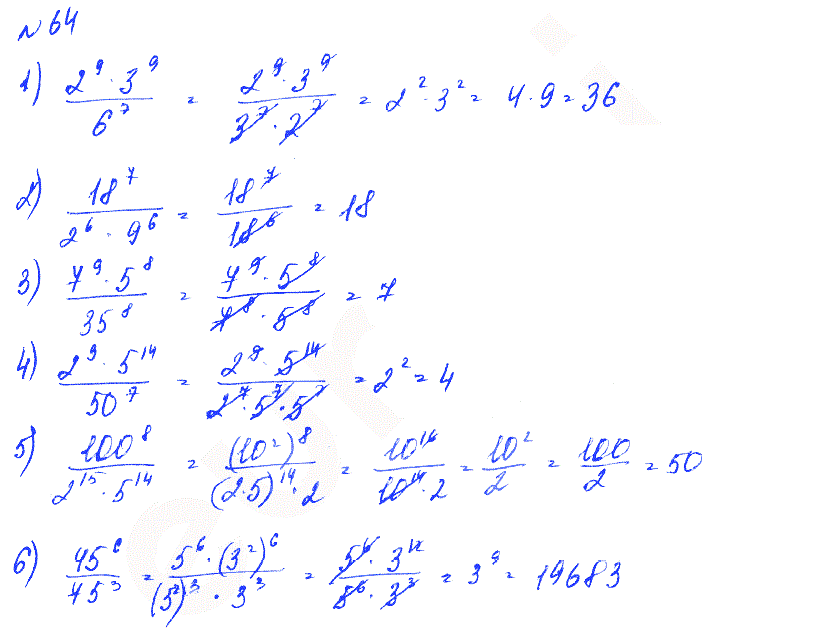 №64
1) \frac{2^9 · 3^9}{6^7} = \frac{2^9 · 3^9}{3^7 · 2^7} = 2^2 · 3^2 = 4 · 9 = 36
2) \frac{18^7}{2^6 · 9^6} = \frac{18^7}{18^6} = 18
3) \frac{7^9 · 5^8}{35^8} = \frac{7^9 · 5^8}{7^8 · 5^8} = 7
4) \frac{2^9 · 5^{14}}{50^7} = \frac{2^9 · 5^{14}}{2^7 · 5^7 · 5^7} = 2^2 = 4
5) \frac{100^8}{2^{15} · 5^{14}} = \frac{(10^2)^8}{(2·5)^{14} · 2} = \frac{10^{16}}{10^{14} · 2} = \frac{10^2}{2} = \frac{100}{2} = 50
6) \frac{45^6}{75^3} = \frac{5^6 · (3^2)^6}{(5^2)^3 · 3^3} = \frac{5^6 · 3^{12}}{5^6 · 3^3} = 3^9 = 19683